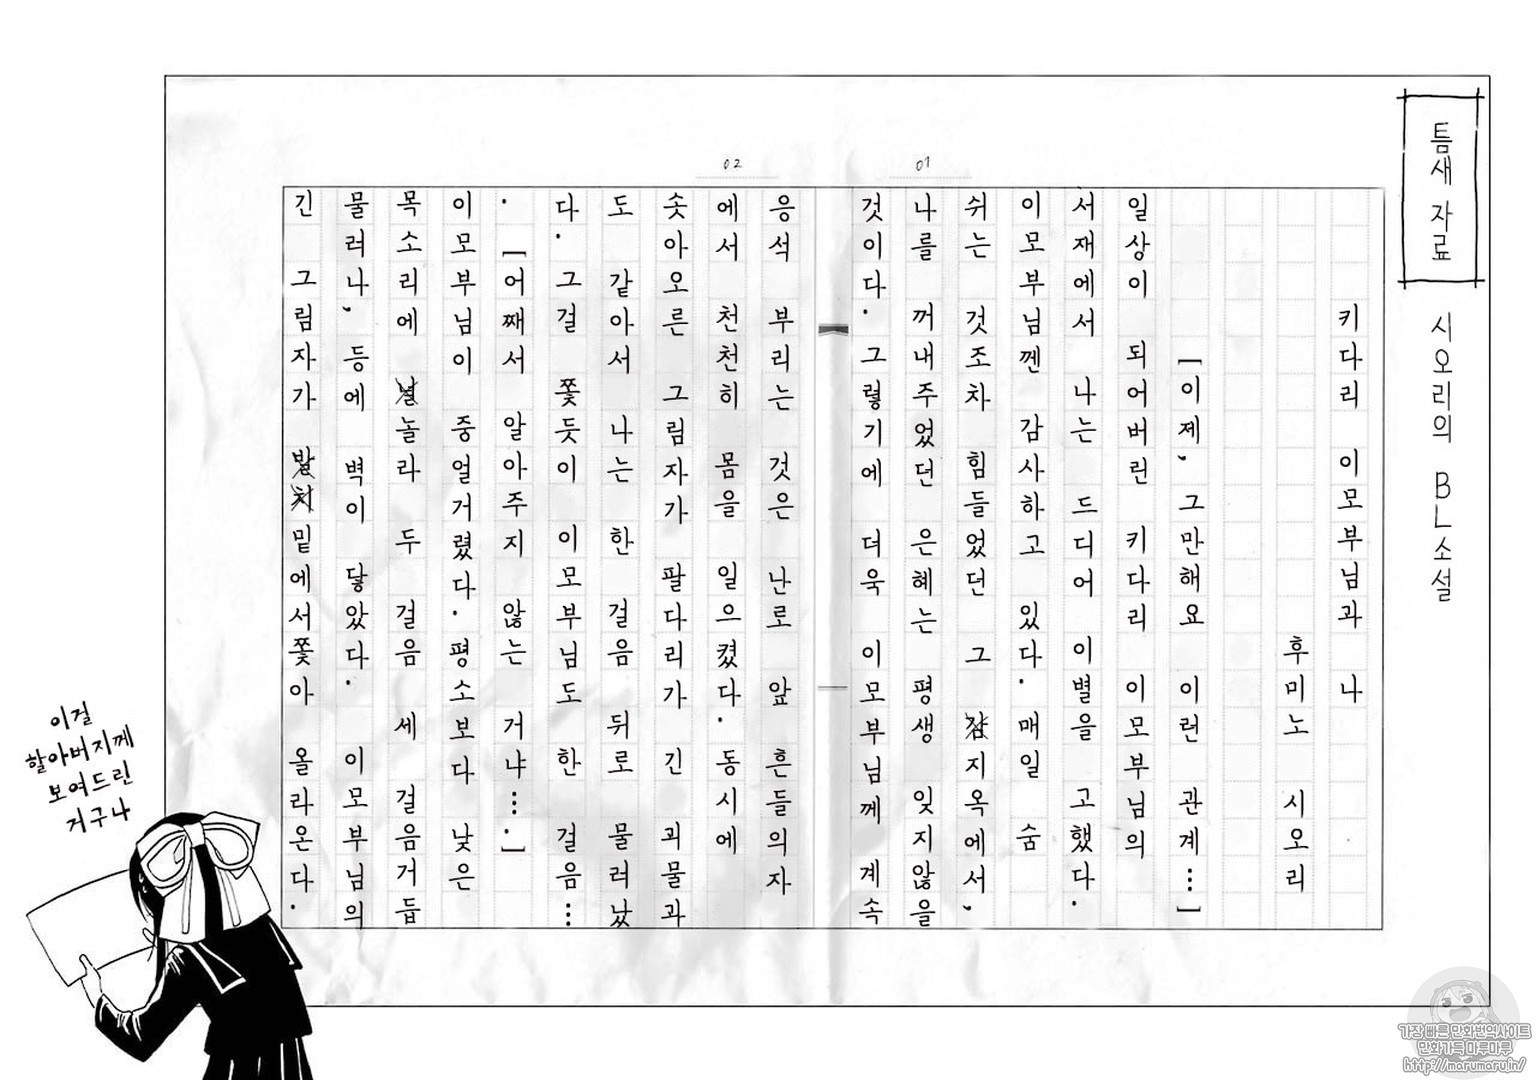 틈새 자료
시오리의 BL소설
키다리 이모부님과 나
후미노 시오리
[이제, 그만해요 이런 관계…]
일상이 되어버린 키다리 이모부님의
서재에서 나는 드디어 이별을 고했다.
이모부님껜 감사하고 있다. 매일 숨
쉬는 것조차 힘들었던 그 지옥에서,
나를 꺼내주었던 은혜는 평생 잊지않을
것이다. 그렇기에 더욱 이모부님께 계속
01
02
응석 부리는 것은 난로 앞 흔들의자
에서 천천히 몸을 일으켰다. 동시에
솟아오른 그림자가 팔다리가 긴 괴물과
도 같아서 나는 한 걸음 뒤로 물러났
다. 그걸 쫓듯이 이모부님도 한 걸음…
. [어째서 알아주지 않는 거냐….]
이모부님이 중얼거렸다. 평소보다 낮은
목소리에 놀라 두 걸음 세 걸음거듭
물러나, 등에 벽이 닿았다. 이모부님의
긴 그림자가 발치밑에서쫓아 올라온다.
이걸
할아버지께
보여드린
거구나
가장 빠른 만화번역사이트
만화가득 마루마루
http://marumaru.in/